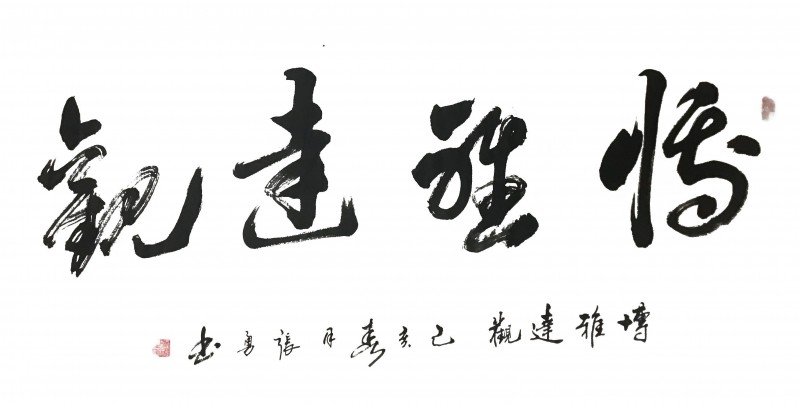 博雅達觀
博雅達觀 己亥春月 張勇書